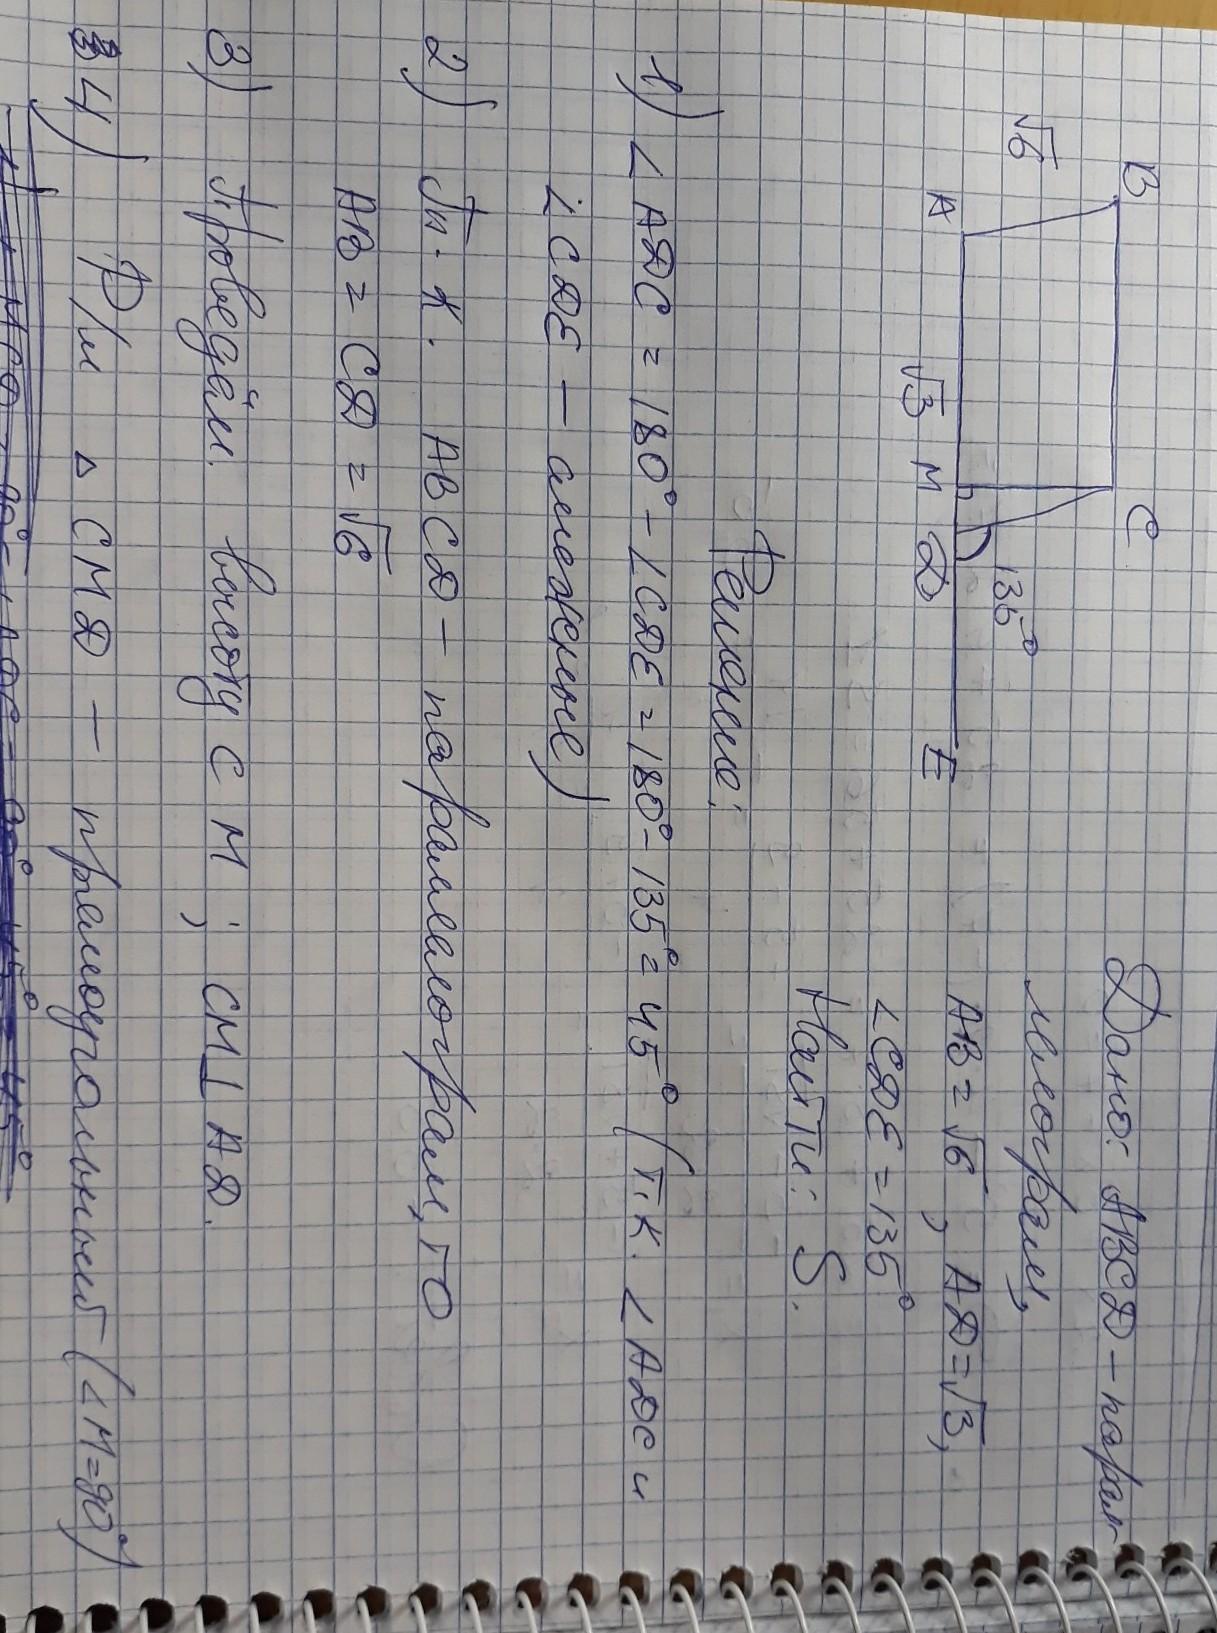 B C
√6 135°
A √3 М D E
Дано: ABCD - парал-
лелограмм,
AB = √6, AD = √3,
∠CDE = 135°
Найти: S.
Решение:
1) ∠ADC = 180° - ∠CDE = 180° - 135° = 45° (т.к. ∠ADC и
∠CDE - смежные)
2) Т.к. ABCD - параллелограмм, то
AB = CD = √6
3) Проведём высоту CM; CM⊥AD.
4) Р/м △CMD - прямоугольный (∠M=90°)